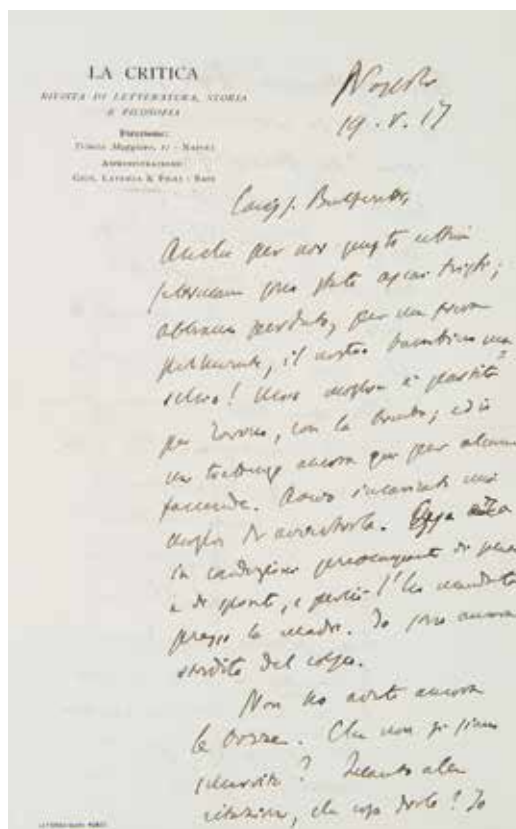 LA CRITICA
RIVISTA DI LETTERATURA, STORIA
E FILOSOFIA
Direzione:
Trinità Maggiore, 12 - NAPOLI
AMMINISTRAZIONE:
GIUS. LATERZA & FIGLI - BARI
Napoli
19. V. 17
Caro
Anche per noi queste ultime
settimane sono state assai tristi;
abbiamo perduto, per una
polmonite, il nostro bambino
! Mia moglie è partita
per Torino, con la bimba; ed io
mi trattengo ancora qui per alcune
faccende. Avevo incaricato mia
moglie di avvertirla. Essa era
in condizioni preoccupanti di
e di spirito, e perciò l'ho mandata
presso la madre. Io sono ancora
stordito del colpo.
Non ho avuto ancora
le bozze. Che non si siano
smarrite? Quanto alla
citazione, che cosa dirle? Io